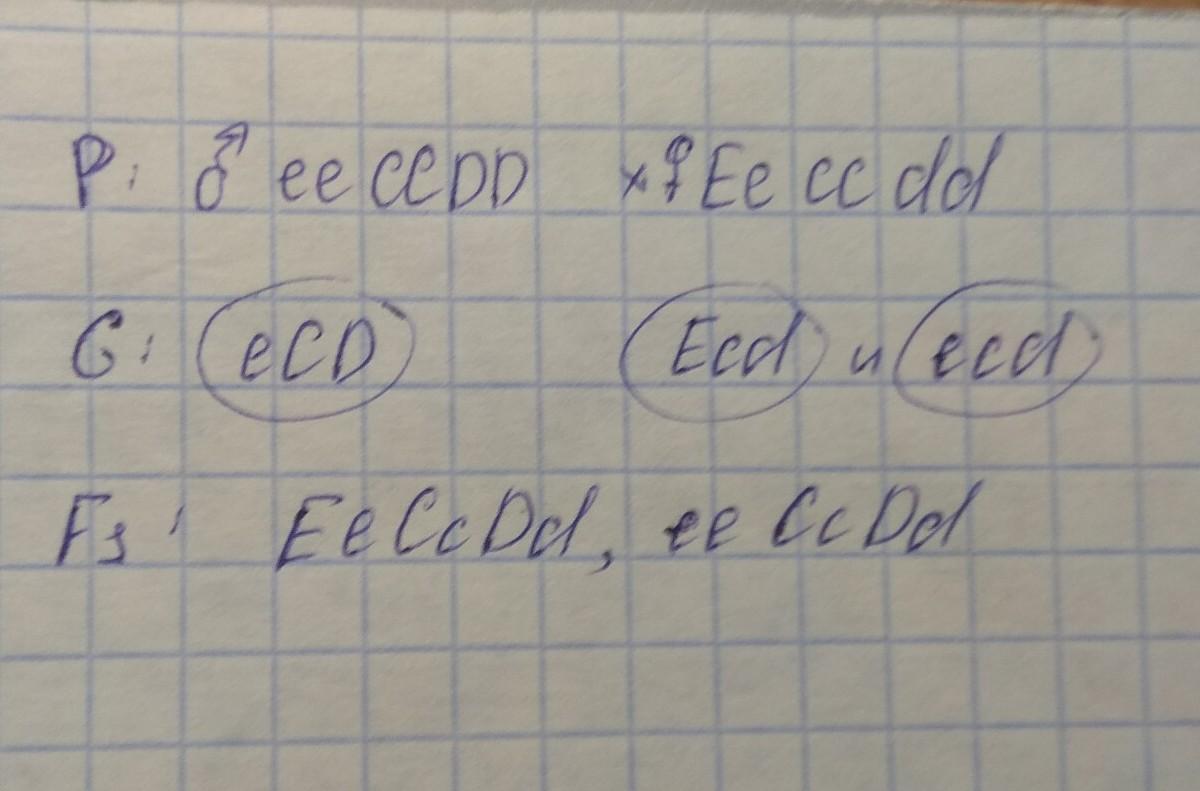 P: ♂ ee CC DD x ♀ Ee cc dd
G: eCD Ecd и ecd
F1: EeCcDd, ee CcDd